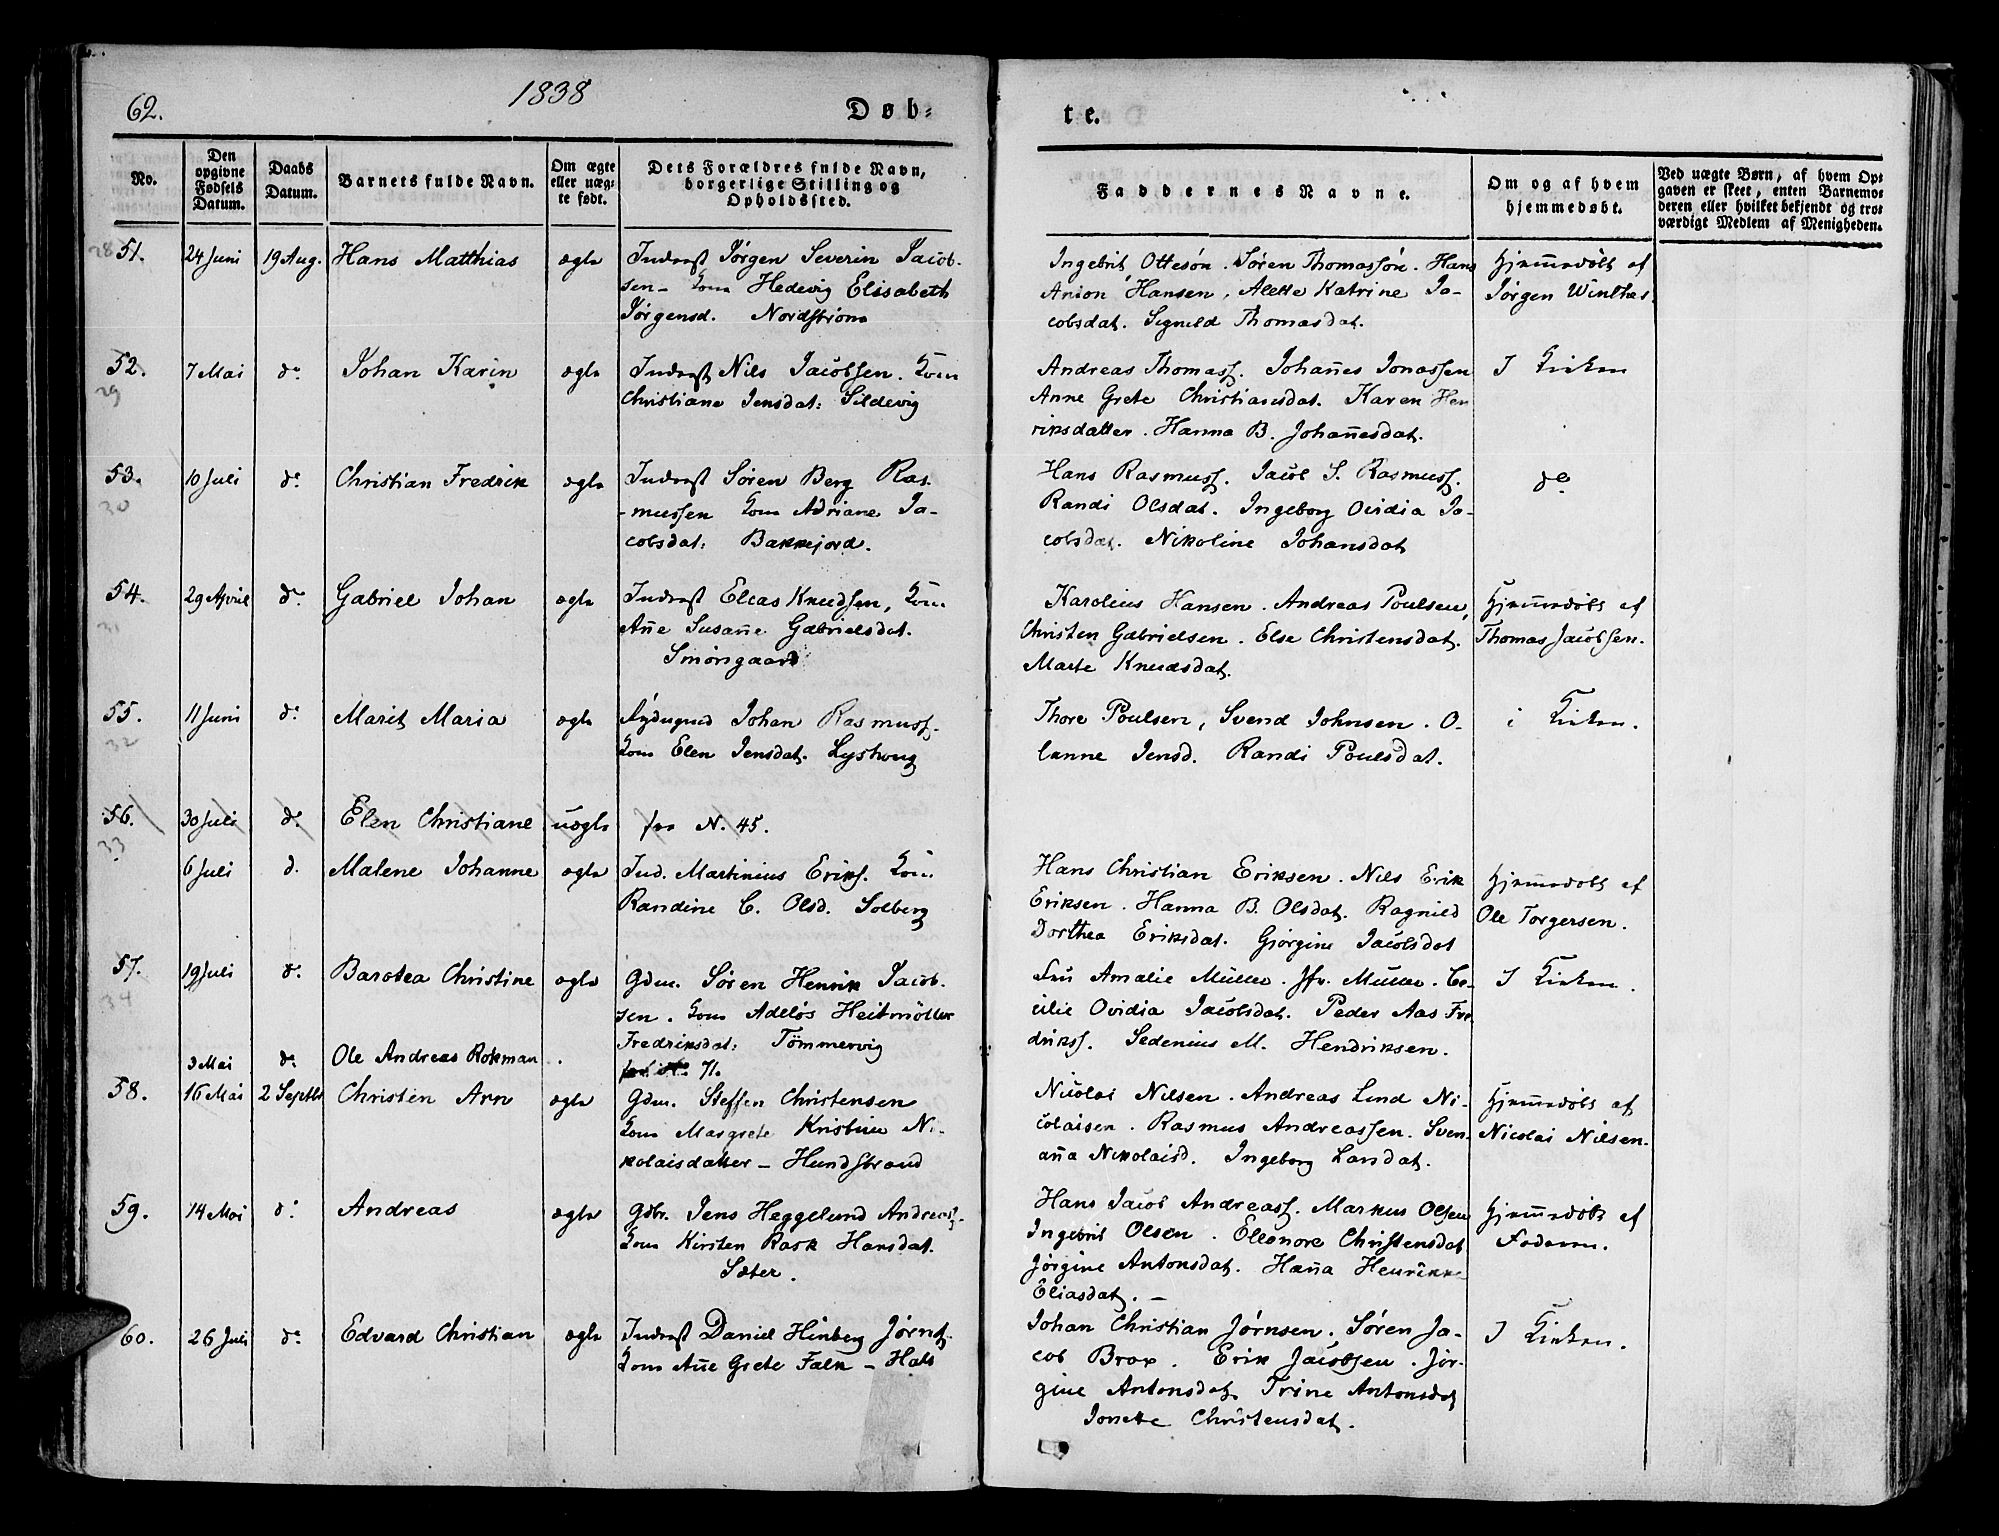 62.
1838
Døb-
te.
No.
Den opgivne Fødsels Datum.
Daabs Datum.
Barnets fulde Navn.
Om ægte eller uæg- te født.
Dets Forældres fulde Navn, borgerlige Stilling og Opholdssted.
Faddernes Navne.
Om og af hvem hjemmedøbt.
Ved uægte Børn, af hvem Op- gaven er skeet, enten Barnemo- deren eller hvilket bekjendt og tro- værdigt Medlem af Menigheden.
28 51. 24 Juni 19 Aug. Hans Matthias ægte Inderst Jørgen Severin Jacob-
sen - Kone Hedevig Elisabeth
Jørgensd. Nordstrøm
Ingebrit Ottesøn. Søren Thomassøn. Hans
Anton Hansen, Alette Katrine Ja-
cobsdat. Signild Thomasdat.
Hjemmedøbt af
Jørgen Winther
52. 7 Mai do Johan Karin ægte Inderst Nils Jacobsen. Kone
29
Christiane Jensdat: Sildevig
Andreas Thomass. Johañes Jonassen
Anne Grete Christiansdat. Karen Hen
riksdatter. Hanna B. Johañesdat.
I Kirken
53. 10 Juli do Christian Fredrik ægte Inderst Søren Berg Ras-
30
mussen Kone Adriane Ja-
cobsdat: Bakkejord.
Hans Rasmuss. Jacob S. Rasmuss.
Randi Olsdat. Ingeborg Ovidia Ja-
cobsdat. Nikoline Johansdat
do
54. 29 April do Gabriel Johan ægte Inderst Elias Knudsen, Kone
31
Añe Susañe Gabrielsdat.
Smörsgaard
Karolius Hansen. Andreas Poulsen,
Christen Gabrielsen. Else Christensdat.
Marte Knudsdat.
Hjemmedøbt af
Thomas Jacobsen.
55. 11 Juni do Marit Maria ægte Johan Rasmuss.
32
Kone Elen Jensdat. Lyshoug
Thore Poulsen, Svend Johnsen. O-
lanne Jensd. Randi Poulsdat.
i Kirken.
56. 30 Juli do Elen Christiane uægte see N. 45.
33
6 Juli d. Malene Johanne ægte Ind. Martinius Eriks. Kone
Randine C. Olsd. Solberg
Hans Christian Eriksen. Nils Erik
Eriksen. Hanna B. Olsdat. Ragnild
Dorthea Eriksdat. Gjørgine Jacobsdat
Hjemmedøbt af
Ole Torgersen.
57. 19 Juli do Barotea Christine ægte Gdm. Søren Henrik Jacob-
34
sen. Kone Adeløs Heitmöller
Fredriksdat: Tömmervig
Fru Amalie Müller. Jfr. Müller. Ce-
cilie Ovidia Jacobsdat. Peder Aas Fre
driks. Sedenius M. Hendriksen.
I Kirken.
3 Mai do Ole Andreas Rokman . 71.
58. 16 Mai 2 Septbr Christen Arn ægte Gdm. Steffen Christensen
Kone Margrete Kristine Ni-
kolaisdatter - Hundstrand
Nicolai Nilsen. Andreas Lind Ni-
colaisen. Rasmus Andreassen. Sven-
aña Nikolaisd. Ingeborg Larsdat.
Hjemmedøbt af
Nicolai Nilsen.
59. 14 Mai do Andreas ægte Gdbr. Jens Heggelund Andreass.
Kone Kirsten Rask Hansdat.
Sæter.
Hans Jacob Andreass. Markus Olsen
Ingebrit Olsen. Elleonore Christensdat
Jörgine Antonsdat. Haña Henrikke
Eliasdat. -
Hjemmedøbt af
Faderen.
60. 26 Juli do Edvard Christian ægte Inderst Daniel Hinberg Jørns.
Kone Añe Grete Falk - Hals
Johan Christian Jørnsen. Søren Ja-
cob Brox. Erik Jacobsen. Jør-
gine Antonsdat. Trine Antonsdat
Jonette Christensdat.
I Kirken.